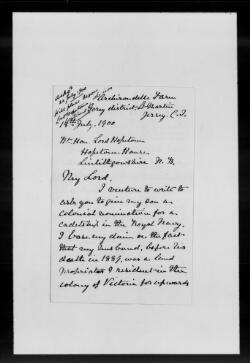 Archirondelle Farm
Gorey district. St Martin
Jersey. C.I.
18th July. 1900
Rt. Hon. Lord Hopetoun
Hopetoun House
Linlithgowshire N.B.
My Lord.
I venture to write to
ask you to give my son a
colonial nomination for a
cadetship in the Royal Navy.
I base my claim on the fact
that my husband, before his
death in 1889, was a land
proprietor & resident in the
colony of Victoria for upwards